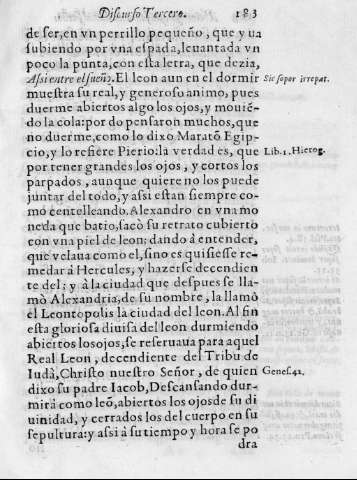 Discurso Tercero. 183
de ser, en vn perrillo pequeño, que y ua
subiendo por vna espada, leuantada vn
poco la punta, con esta letra, que dezia,
Assi entre el sueño. El leon aun en el dormir Sic sopor irrepat.
muestra su real, y generoso animo, pues
duerme abiertos algo los ojos, y mouié-
do la cola: por do pensaron muchos, que
no duerme, como lo dixo Maratõ Egip-
cio, y lo refiere Pierio: la verdad es, que Lib. 1. Hierog.
por tener grandes los ojos, y cortos los
parpados, aunque quiere no los puede
juntar del todo, y assi estan siempre co-
mo centelleando. Alexandro en vna mo
neda que batio, sacò su retrato cubierto
con vna piel de leon: dando à entender,
que velaua como el, sino es quisiesse re-
medar à Hercules, y hazerse decendien
te del: y à la ciudad que despues se lla-
mò Alexandria, de su nombre, la llamò
el Leontopolis la ciudad del leon. Al fin
esta gloriosa diuisa del leon durmiendo
abiertos los ojos, se reseruaua para aquel
Real Leon, decendiente del Tribu de
Iudà, Christo nuestro Señor, de quien Genes. 42.
dixo su padre Iacob, Descansando dur-
mirà como leõ, abiertos los ojos de su di
uinidad, y cerrados los del cuerpo en su
sepultura: y assi à su tiempo y hora se po
dra